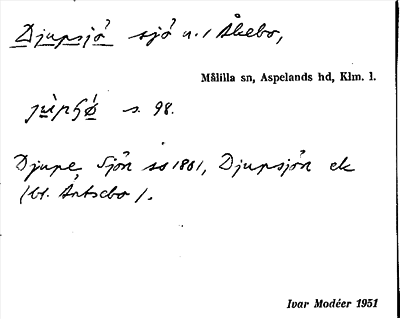 Djupsjö sjö n. / Åkebo,
Målilla sn, Aspelands hd, Klm. l.
s. 98.
Djupe Sjön so 1801, Djupsjön ek
(bl. Antsebo).
Ivar Modéer 1951